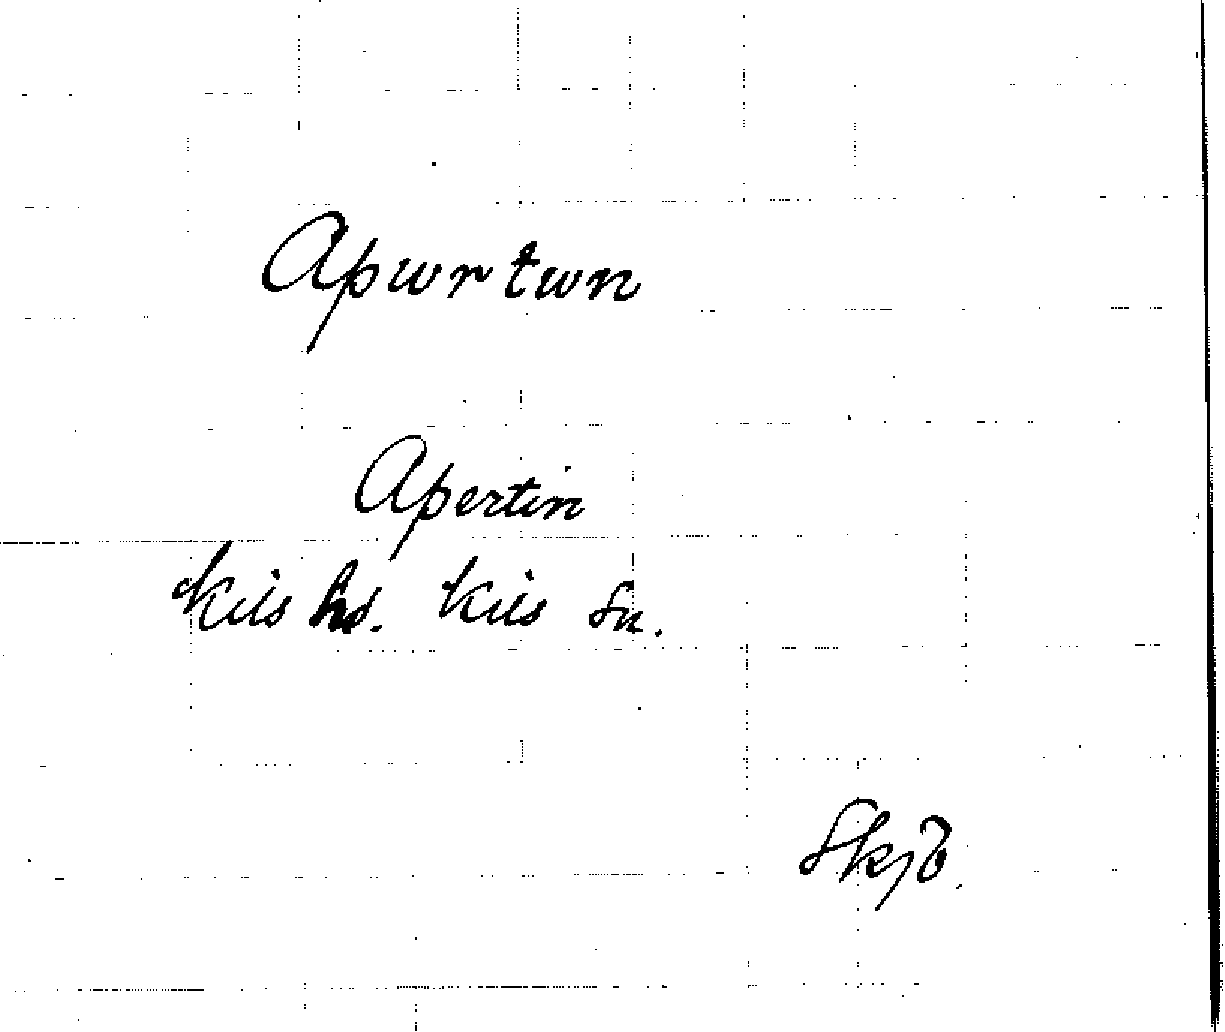 Apwrtwn
Apertin
kiis hd. kiis sn.
SkjB.